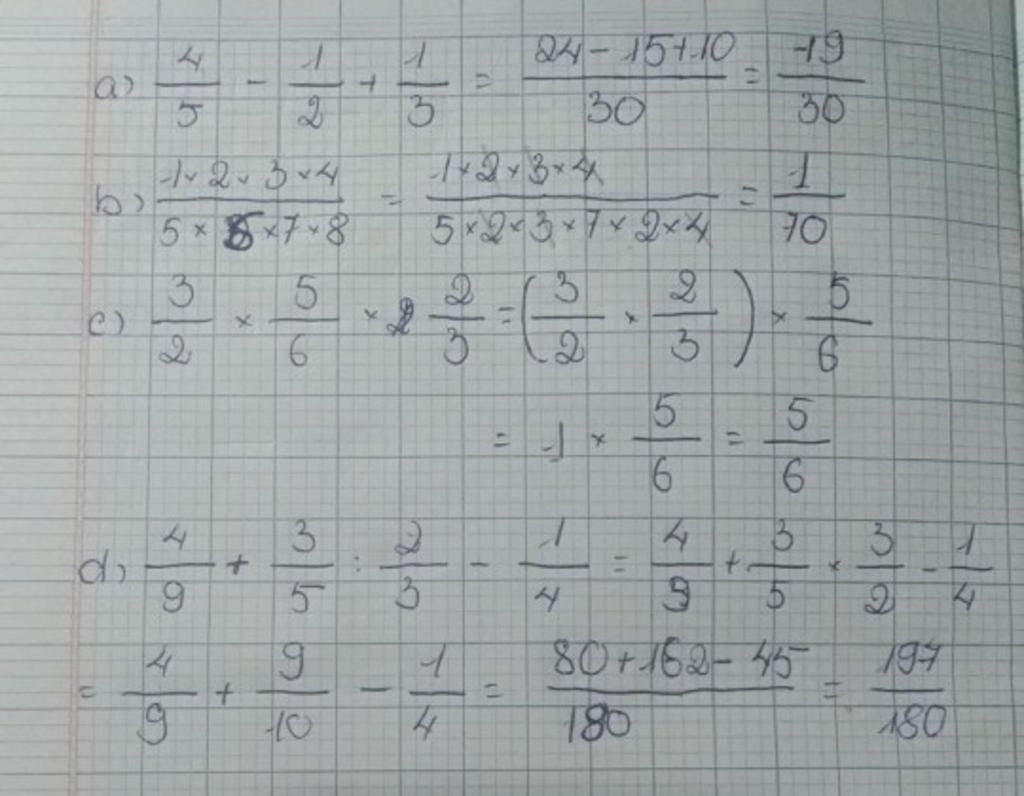 a) 4/5 - 1/2 + 1/3 = (24 - 15 + 10)/30 = 19/30
b) (1×2×3×4)/(5×6×7×8) = (1×2×3×4)/(5×2×3×7×2×4) = 1/70
c) 3/2 × 5/6 × 2/3 = (3/2 × 2/3) × 5/6
= 1 × 5/6 = 5/6
d) 4/9 + 3/5 : 2/3 - 1/4 = 4/9 + 3/5 × 3/2 - 1/4
= 4/9 + 9/10 - 1/4 = (80 + 162 - 45)/180 = 197/180